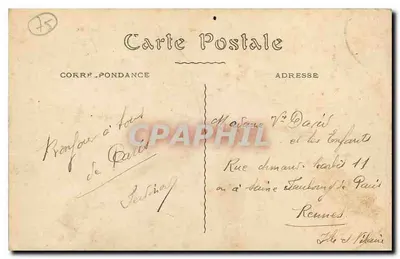 75
Carte Postale
CORRESPONDANCE
ADRESSE
Bonjour à tous
de Paris
CPARAMA
Madame Vve David
et les Enfants
Rue 11
ou à Paris
Rennes
Ille et Vilaine